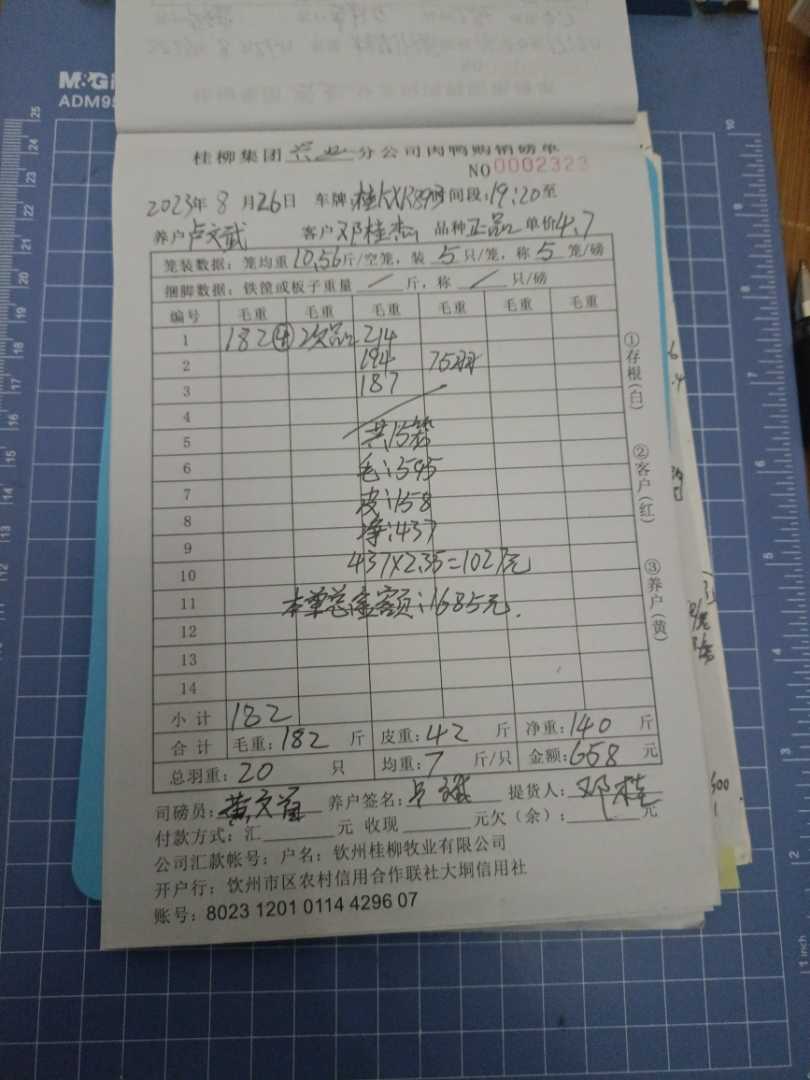 M&G
ADM95
桂柳集团 兴业 分公司肉鸭购销磅单
NO 0002323
2023年 8 月 26日 车牌: 时间段: 19:20至
养户 卢文武 客户 邓桂杰 品种 正品 单价 4.7
笼装数据: 笼均重 10.56 斤/空笼, 装 5 只/笼, 称 5 笼/磅
捆脚数据: 铁筐或板子重量 / 斤, 称 / 只/磅
编号 毛重 毛重 毛重 毛重 毛重 毛重
1 182④ 次品 214
2 194 75羽
3 187
4
5 共15笼
6 毛:595
7 皮:158
8 净:437
9
10 437×2.35=1027元
11 本单总金额:1685元.
12
13
14
小计 182
合计 毛重: 182 斤 皮重: 42 斤 净重: 140 斤
总羽重: 20 只 均重: 7 斤/只 金额: 658 元
司磅员: 养户签名: 提货人: 邓桂
付款方式: 汇 元 收现 元欠(余): 元
公司汇款帐号: 户名: 钦州桂柳牧业有限公司
开户行: 钦州市区农村信用合作联社大垌信用社
账号: 8023 1201 0114 4296 07
①存根(白)
②客户(红)
③养户(黄)